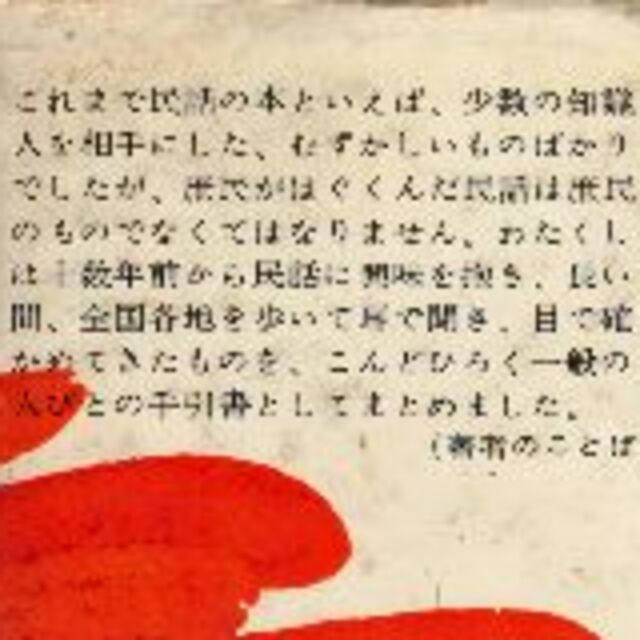 これまで民話の本といえば、少数の知識
人を相手にした、むずかしいものばかり
でしたが、庶民がはぐくんだ民話は庶民
のものでなくてはなりません。わたくし
は十数年前から民話に興味を抱き、長い
間、全国各地を歩いて耳で聞き、目で確
かめてきたものを、こんどひろく一般の
人びとの手引書としてまとめました。
(著者のことば